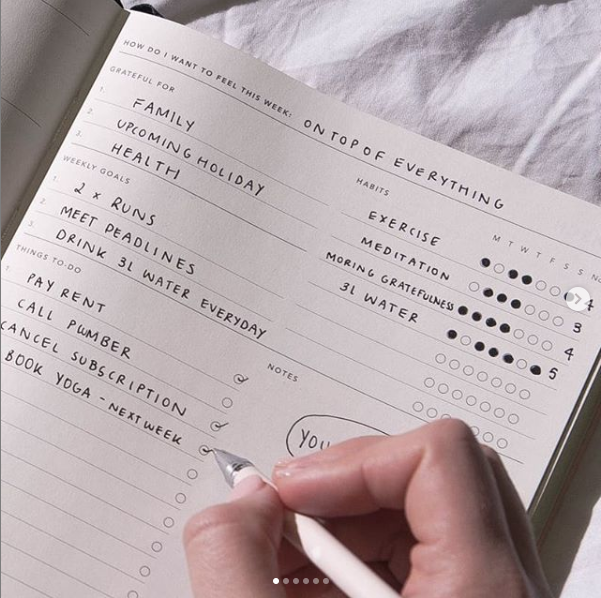 HOW DO I WANT TO FEEL THIS WEEK: ON TOP OF EVERYTHING
GRATEFUL FOR
1. FAMILY
2. UPCOMING HOLIDAY
3. HEALTH
WEEKLY GOALS
1. 2 x RUNS
2. MEET DEADLINES
3. DRINK 3L WATER EVERYDAY
THINGS TO-DO
PAY RENT
CALL PLUMBER
CANCEL SUBSCRIPTION
BOOK YOGA - NEXT WEEK
HABITS
M T W T F S S
EXERCISE 4
MEDITATION 3
MORING GRATEFULNESS 4
3L WATER 5
NOTES
YOU